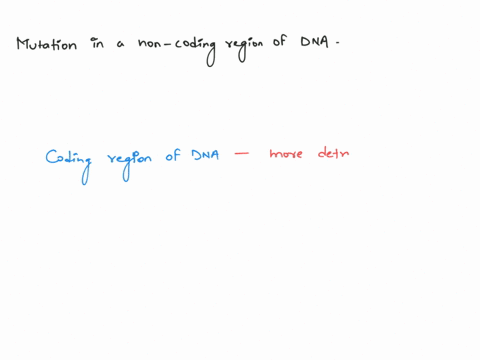 Mutation in a non-coding region of DNA.
Coding region of DNA — more detr